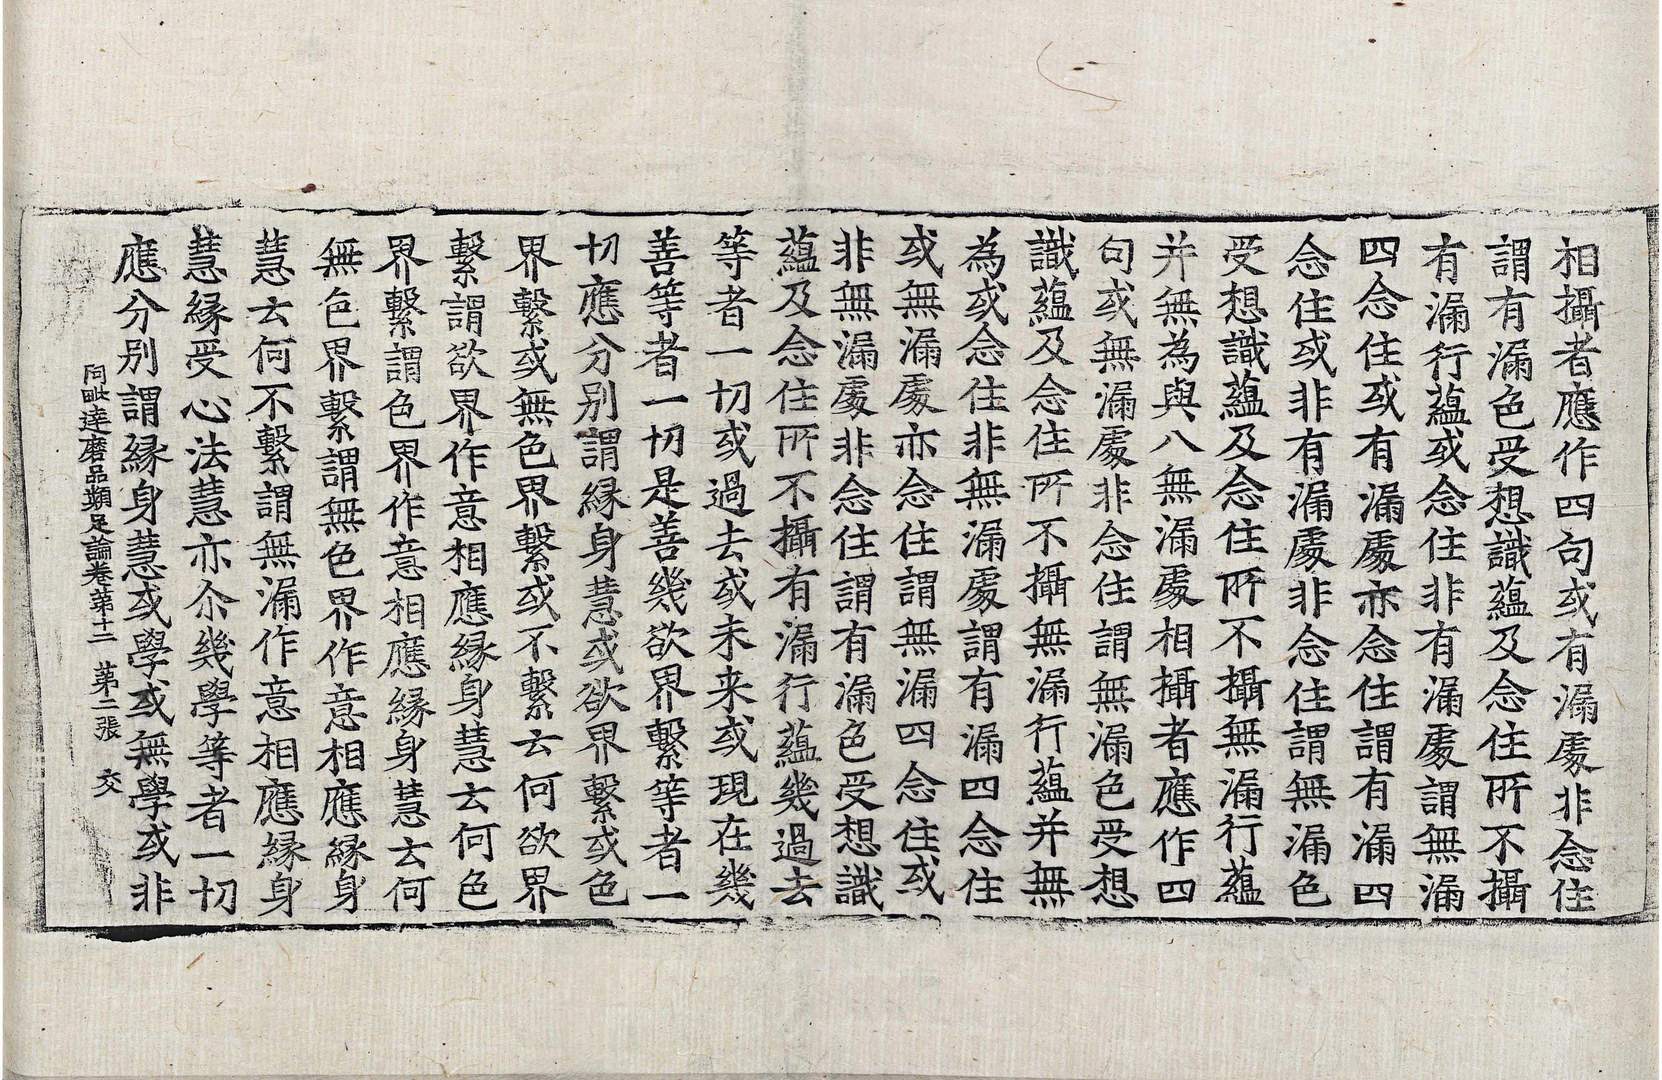 相攝者應作四句或有漏處非念住
謂有漏色受想識蘊及念住所不攝
有漏行蘊或念住非有漏處謂無漏
四念住或有漏處亦念住謂有漏四
念住或非有漏處非念住謂無漏色
受想識蘊及念住所不攝無漏行蘊
并無為與八無漏處相攝者應作四
句或無漏處非念住謂無漏色受想
識蘊及念住所不攝無漏行蘊并無
為或念住非無漏處謂有漏四念住
或無漏處亦念住謂無漏四念住或
非無漏處非念住謂有漏色受想識
蘊及念住所不攝有漏行蘊幾過去
等者一切或過去或未来或現在幾
善等者一切是善幾欲界繫等者一
切應分别謂縁身慧或欲界繫或色
界繫或無色界繫或不繫云何欲界
繫謂欲界作意相應縁身慧云何色
界繫謂色界作意相應縁身慧云何
無色界繫謂無色界作意相應縁身
慧云何不繫謂無漏作意相應縁身
慧縁受心法慧亦尒幾學等者一切
應分别謂縁身慧或學或無學或非
阿毗達磨品類足論卷苐十二 苐二張 交